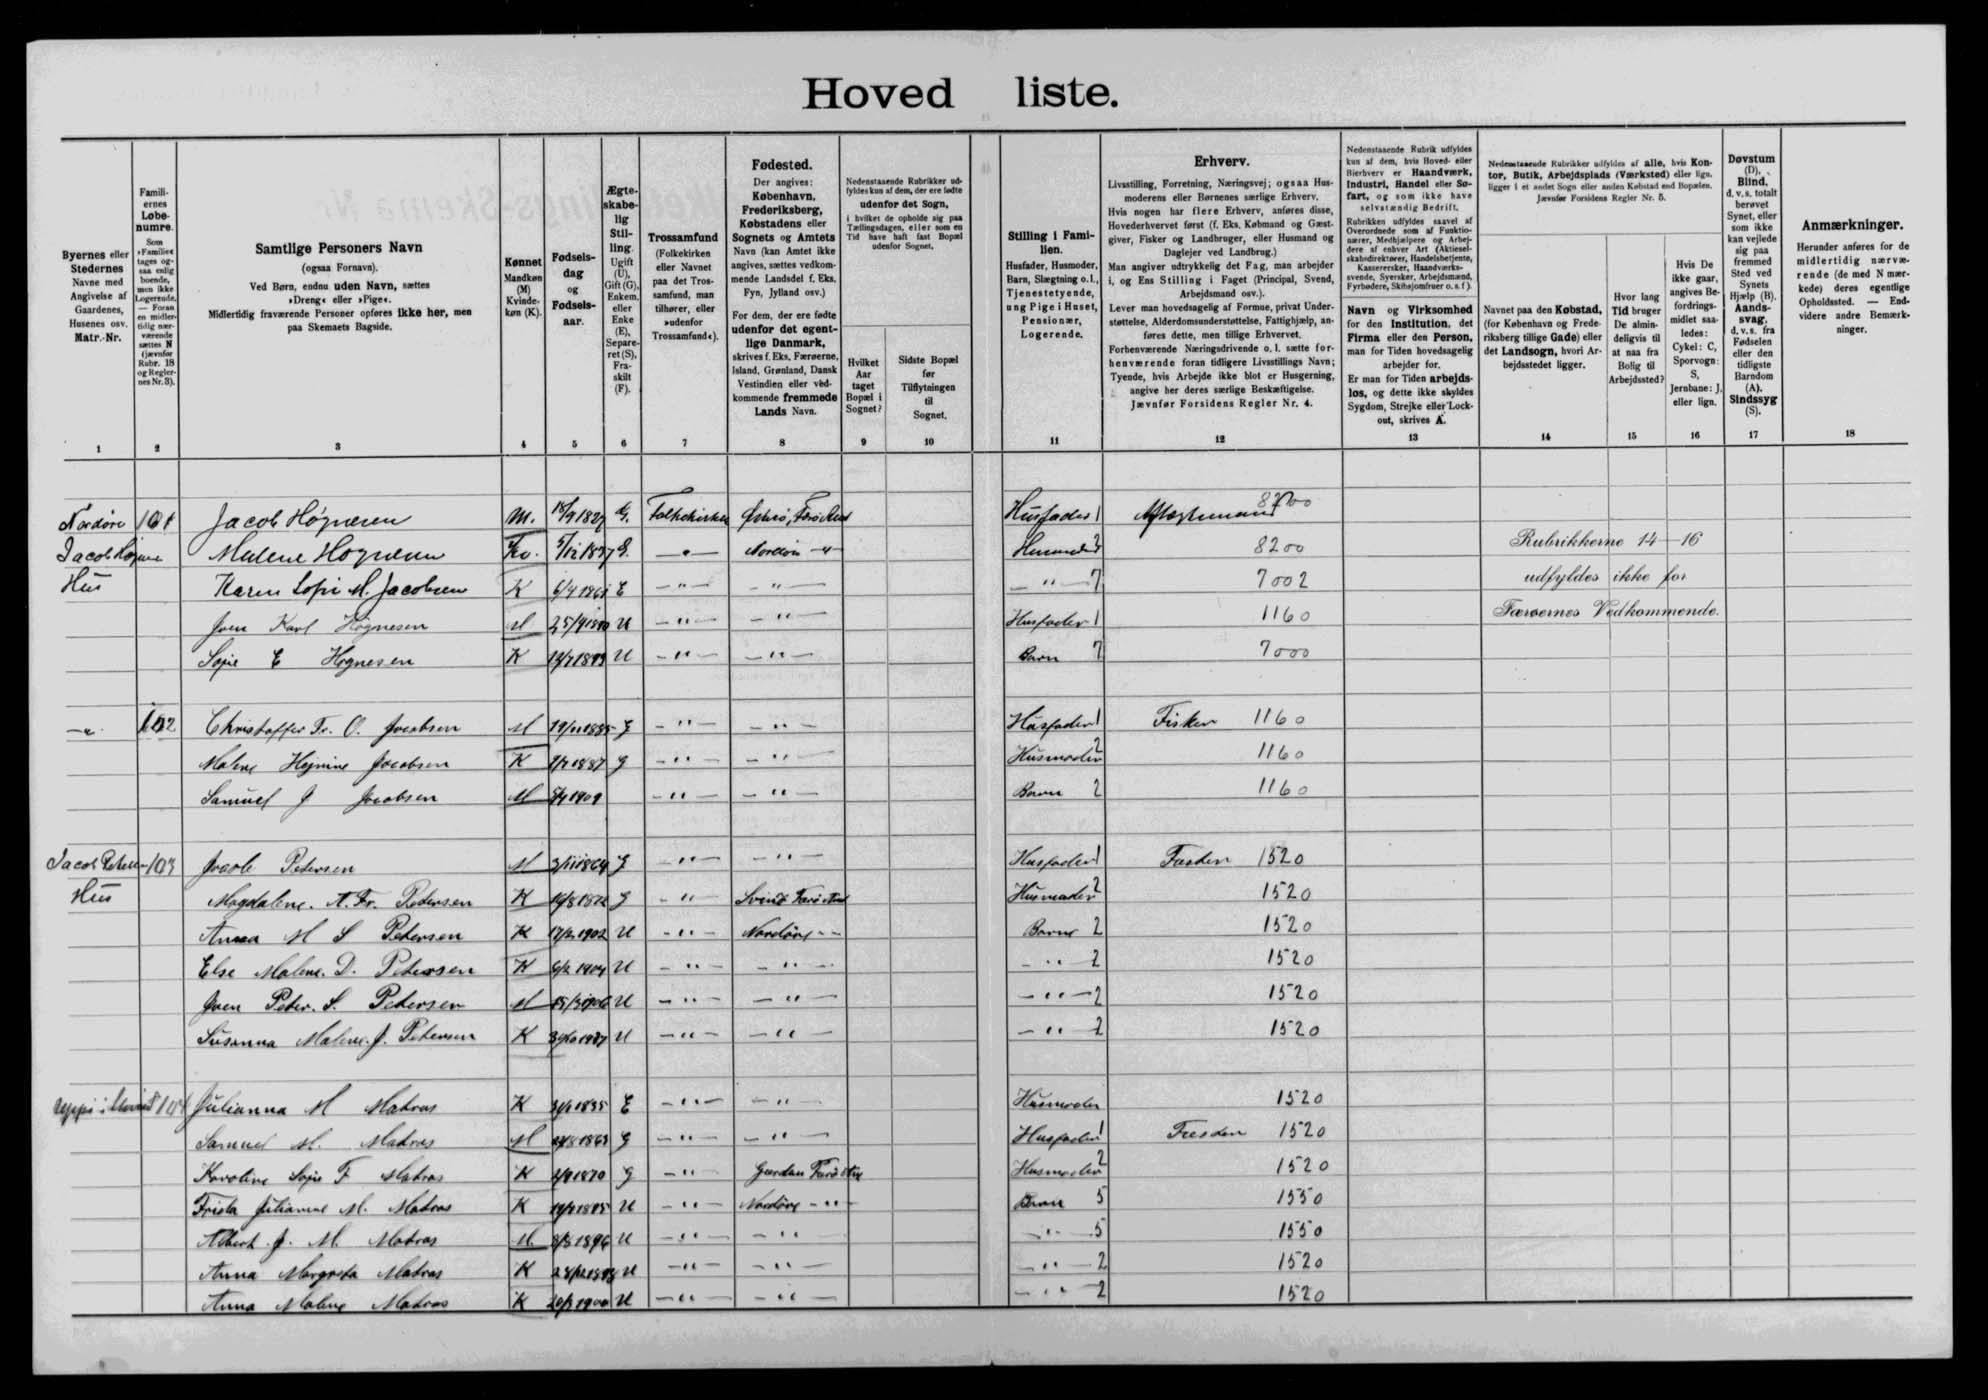 Hoved liste.
Byernes eller Stedernes Navne med Angivelse af Gaardenes, Husenes osv. Matr.-Nr.
Familiernes Løbenumre.
Som »Familie« tages ogsaa enlig boende, men ikke Logerende. — Foran en midlertidig nærværende sættes N (jævnfør Rubr. 18 og Regler-nes Nr. 3).
Samtlige Personers Navn
(ogsaa Fornavn).
Ved Børn, endnu uden Navn, sættes »Dreng« eller »Pige«.
Midlertidig fraværende Personer opføres ikke her, men paa Skemaets Bagside.
Kønnet
Mandkøn (M) Kvindekøn (K).
Fødselsdag og Fødselsaar.
Ægteskabelig Stilling.
Ugift (U), Gift (G), Enkem. eller Enke (E), Separeret (S), Fraskilt (F).
Trossamfund
(Folkekirken eller Navnet paa det Trossamfund, man tilhører, eller »udenfor Trossamfund«).
Fødested.
Der angives: København, Frederiksberg, Købstadens eller Sognets og Amtets Navn (kan Amtet ikke angives, sættes vedkommende Landsdel f. Eks. Fyn, Jylland osv.)
For dem, der ere fødte udenfor det egentlige Danmark, skrives f. Eks. Færøerne, Island, Grønland, Dansk Vestindien eller vedkommende fremmede Lands Navn.
Nedenstaaende Rubrikker udfyldes kun af dem, der ere fødte udenfor det Sogn, i hvilket de opholde sig paa Tællingsdagen, eller som en Tid have haft fast Bopæl udenfor Sognet.
Hvilket Aar taget Bopæl i Sognet?
Sidste Bopæl før Tilflytningen til Sognet.
Stilling i Familien.
Husfader, Husmoder, Barn, Slægtning o.l., Tjenestetyende, ung Pige i Huset, Pensionær, Logerende.
Erhverv.
Livsstilling, Forretning, Næringsvej; ogsaa Husmoderens eller Børnenes særlige Erhverv.
Hvis nogen har flere Erhverv, anføres disse, Hovederhvervet først (f. Eks. Købmand og Gæstgiver, Fisker og Landbruger, eller Husmand og Daglejer ved Landbrug.)
Man angiver udtrykkelig det Fag, man arbejder i, og Ens Stilling i Faget (Principal, Svend, Arbejdsmand osv.).
Lever man hovedsagelig af Formue, privat Understøttelse, Alderdomsunderstøttelse, Fattighjælp, anføres dette, men tillige Erhvervet.
Forhenværende Næringsdrivende o. l. sætte forhenværende foran tidligere Livsstillings Navn; Tyende, hvis Arbejde ikke blot er Husgerning, angive her deres særlige Beskæftigelse.
Jævnfør Forsidens Regler Nr. 4.
Nedenstaaende Rubrik udfyldes kun af dem, hvis Hoved- eller Bierhverv er Haandværk, Industri, Handel eller Søfart, og som ikke have selvstændig Bedrift.
Rubrikken udfyldes saavel af Overordnede som af Funktionærer, Medhjælpere og Arbejdere af enhver Art (Aktieselskabsdirektører, Handelsbetjente, Kasserersker, Haandværkssvende, Syersker, Arbejdsmænd, Fyrbødere, Skibsjomfruer o. s. f.).
Navn og Virksomhed for den Institution, det Firma eller den Person, man for Tiden hovedsagelig arbejder for.
Er man for Tiden arbejdsløs, og dette ikke skyldes Sygdom, Strejke eller Lockout, skrives A.
Nedenstaaende Rubrikker udfyldes af alle, hvis Kontor, Butik, Arbejdsplads (Værksted) eller lign. ligger i et andet Sogn eller anden Købstad end Bopælen.
Jævnfør Forsidens Regler Nr. 5.
Navnet paa den Købstad, (for København og Frederiksberg tillige Gade) eller det Landsogn, hvori Arbejdsstedet ligger.
Hvor lang Tid bruger De almindeligvis til at naa fra Bolig til Arbejdssted?
Hvis De ikke gaar, angives Befordringsmidlet saaledes: Cykel: C, Sporvogn: S, Jernbane: J, eller lign.
Døvstum (D). Blind, d. v. s. totalt berøvet Synet, eller som ikke kan vejlede sig paa fremmed Sted ved Synets Hjælp (B). Aandssvag, d. v. s. fra Fødselen eller den tidligste Barndom (A). Sindssyg (S).
Anmærkninger.
Herunder anføres for de midlertidig nærværende (de med N mærkede) deres egentlige Opholdssted. — Endvidere andre Bemærkninger.
1 2 3 4 5 6 7 8 9 10 11 12 13 14 15 16 17 18
Nordøre 101 Jacob Høgnesen M. G. Folkekirken Husfader 1 8200
Jacob Høgnes Malene Høgnesen Kv. G. —"— Husmoder 2 8200 Rubrikkerne 14—16
Hus Karen Sofie M. Jacobsen K E —"— —"— —"— 7 7002 udfyldes ikke for
Joen Karl Høgnesen M U —"— —"— Husfader 1 1160 Færøernes Vedkommende.
Sofie E Høgnesen K U —"— —"— Barn 7 7000
—"— 102 Christoffer Fr. O. Jacobsen M G —"— —"— Husfader 1 Fisker 1160
Malene Jacobsen K G —"— —"— Husmoder 2 1160
Samuel J Jacobsen M —"— —"— Barn 2 1160
Jacob Petersen 103 Jacob Petersen M G —"— —"— Husfader 1 1520
Hus Magdalene. A. Fr. Petersen K G —"— Svinø Færøerne Husmoder 2 1520
Anna M S Petersen K 17/2 1902 U —"— Nordøre —"— Barn 2 1520
Else Malene. D. Petersen K 6/2 1904 U —"— —"— —"— 2 1520
Joen Peter. S. Petersen M U —"— —"— —"— 2 1520
Susanna Malene. J. Petersen K U —"— —"— —"— 2 1520
104 Julianna M Matras K E —"— —"— Husmoder 1520
Samuel M. Matras M G —"— —"— Husfader 1 1520
Karoline Sofie F Matras K G —"— Husmoder 2 1520
Frida Julianne M. Matras K U —"— Nordøre —"— Barn 5 1550
Albert J. M. Matras M U —"— —"— —"— 5 1550
Anna Margreta Matras K U —"— —"— —"— 2 1520
Anna Malene Matras K U —"— —"— —"— 2 1520